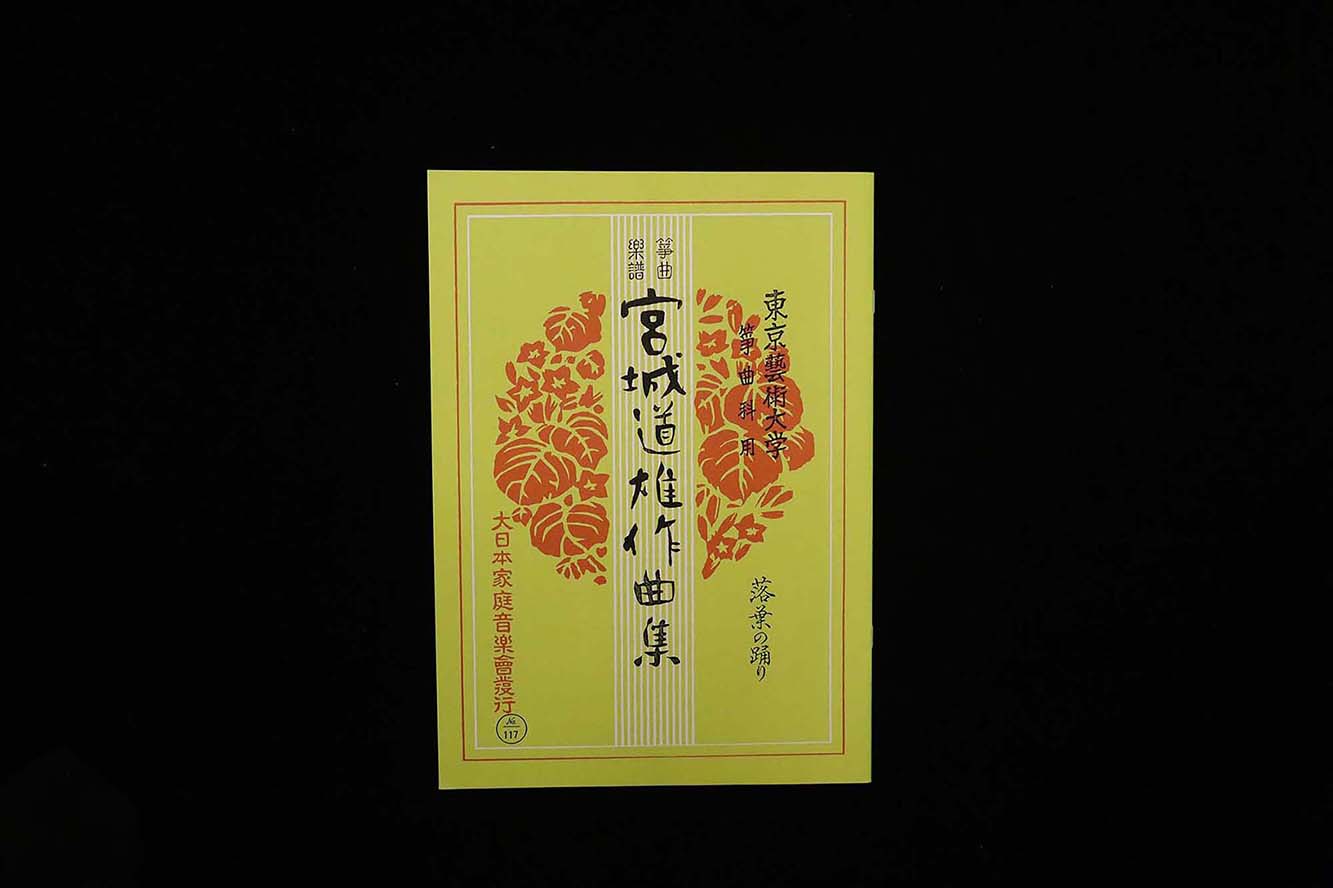 東京藝術大学
箏曲科用
落葉の踊り
箏曲
樂譜
宮城道雄作曲集
大日本家庭音楽會發行
№
117